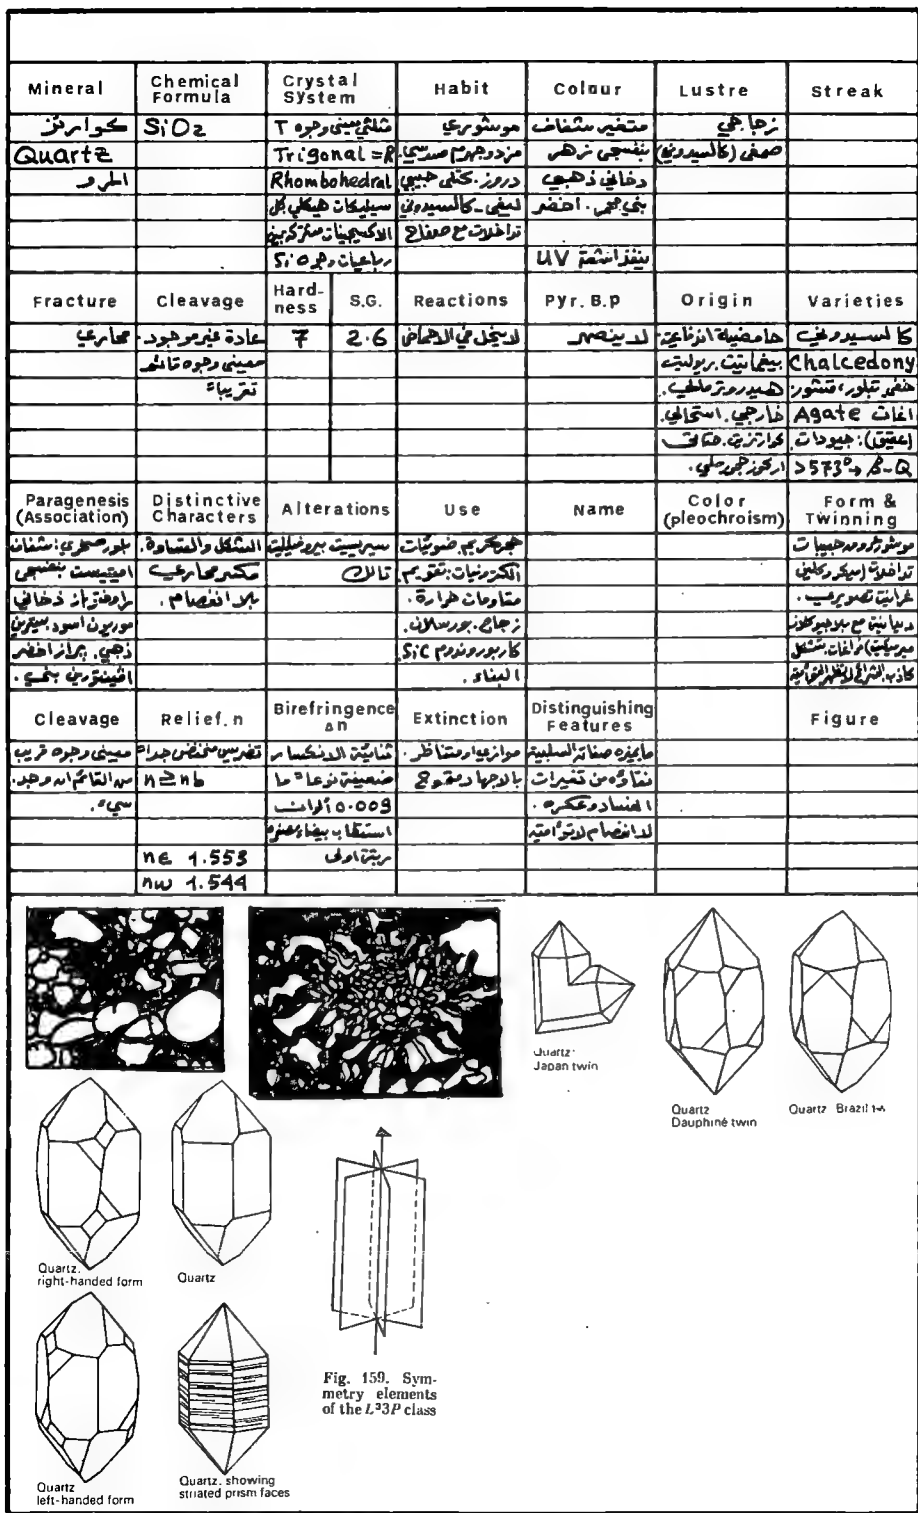 Mineral Chemical Formula Crystal System Habit Colour Lustre Streak
كوارتز SiO2 مثلثي معيني وجوه T موشوري متغير شفاف زجاجي
Quartz Trigonal =R مزدوج هرم سدسي. بنفسجي زهر صمغي (كالسيدوني)
المرو Rhombohedral دروز. كتلي حبيبي دخاني ذهبي
سيليكات هيكلي كل ليفي - كالسيدوني بني محمر. اخضر
الاكسيجينات مشتركة بين تداخلات مع صفاح
رباعيات وجوه SiO ينفذ اشعة UV
Fracture Cleavage Hard-ness S.G. Reactions Pyr. B.p Origin Varieties
محاري عادة غير موجود. 7 2.6 لا ينحل في الاحماض لا ينصهر حامضية اندفاعية: كالسيدوني
معيني وجوه قائم بيغماتيت. ريوليت Chalcedony
تقريباً هيدروترملي. خفي تبلور، قشور.
خارجي. استحالي. اغات Agate
كوارتزيت. (عقيق): جيودات
اركوز حجر رملي. >573° → β-Q
Paragenesis (Association) Distinctive Characters Alterations Use Name Color (pleochroism) Form & Twinning
بلور صخري: شفاف الشكل والقساوة. سيريسيت بيروفيليت حجر كريم. ضوئيات موشور
اميتيست بنفسجي مكسر محاري تالك الكترونيات: تقويم. تداخلات
دخاني بلا انفصام. مقاومات حرارة. غرانيت
موريون اسود. سيترين زجاج. بورسلان. مع بلاجيوكلاز
ذهبي. براز اخضر كاربوروندوم SiC.
افينتورين بني. البناء.
Cleavage Relief. n Birefringence Δn Extinction Distinguishing Features Figure
معيني وجوه قريب تضريس منخفض جداً ثنائية الانكسار موازي او متناظر. ما يميزه صفاته السلبية
من القائم ان وجد. n ≥ nb ضعيفة نوعاً ما بالاجهاد متموج نقاؤه من تغيرات
سيء. 0.009 الوان الفساد وعكره.
استقطاب بيضاء صفراء لا انفصام لا توأمية
nε 1.553 رتبة اولى
nω 1.544
Quartz. Japan twin
Quartz Dauphiné twin
Quartz Brazil
Quartz. right-handed form
Quartz
Fig. 159. Sym-
metry elements
of the L³3P class
Quartz left-handed form
Quartz. showing striated prism faces